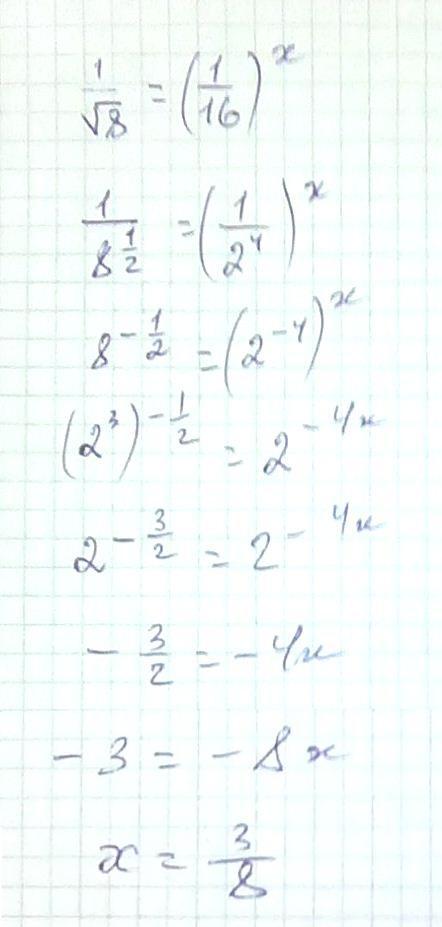 1/√8 = (1/16)^x
1/8^(1/2) = (1/2^4)^x
8^(-1/2) = (2^(-4))^x
(2^3)^(-1/2) = 2^(-4x)
2^(-3/2) = 2^(-4x)
-3/2 = -4x
-3 = -8x
x = 3/8